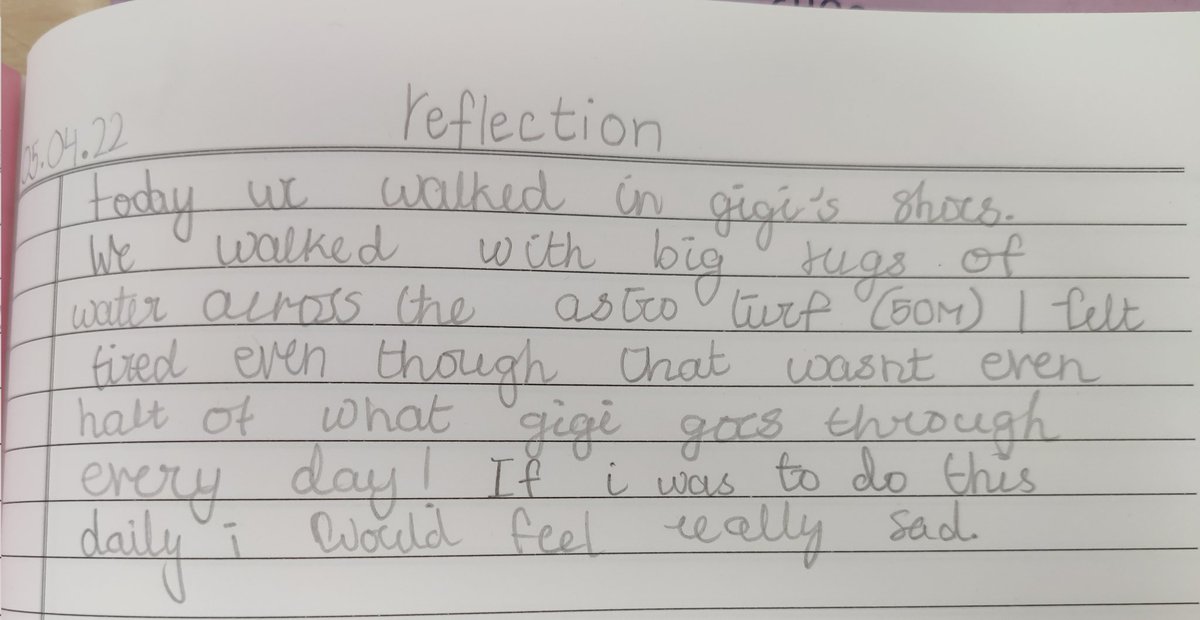 reflection
05.04.22
today we walked in gigi's shoes.
We walked with big jugs of
water across the astro turf (50M) I felt
tired even though that wasnt even
half of what gigi goes through
every day! If i was to do this
daily i would feel really sad.